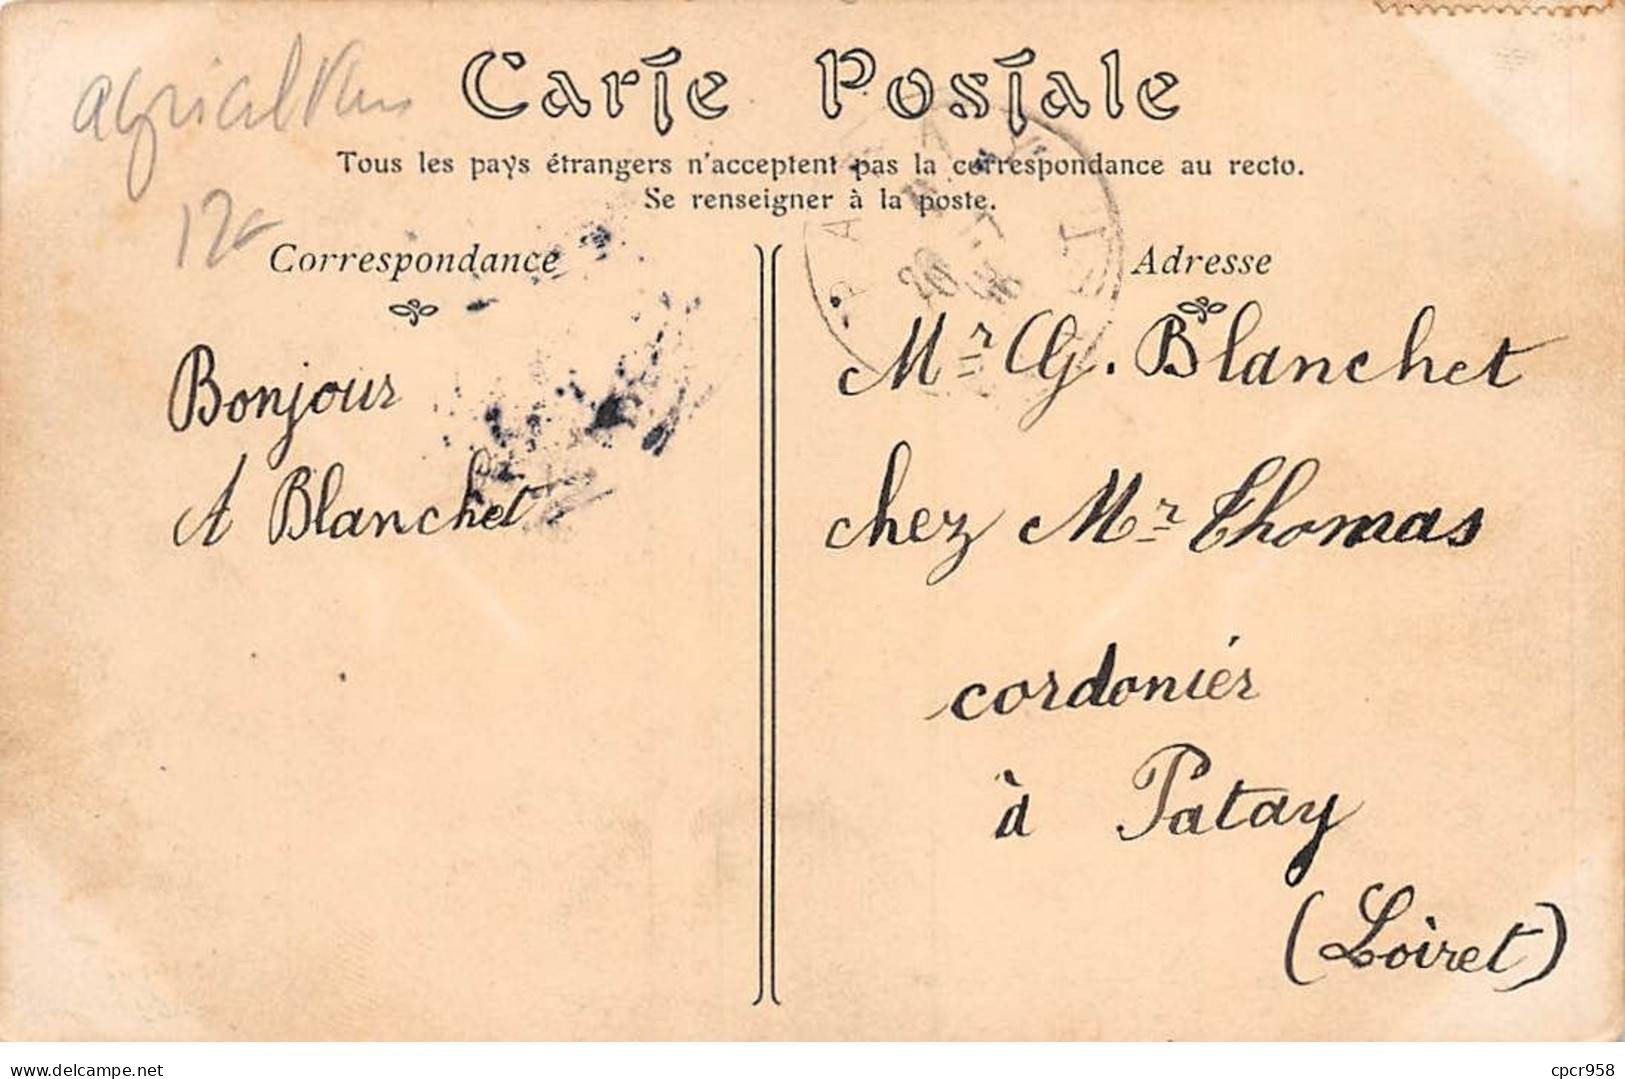 Carte Postale
Tous les pays étrangers n'acceptent pas la correspondance au recto.
Se renseigner à la poste.
Correspondance
Bonjour
A Blanchet
Adresse
Mr G. Blanchet
chez Mr Thomas
cordoniér
à Patay
(Loiret)
Delcampe.net
cpcr958